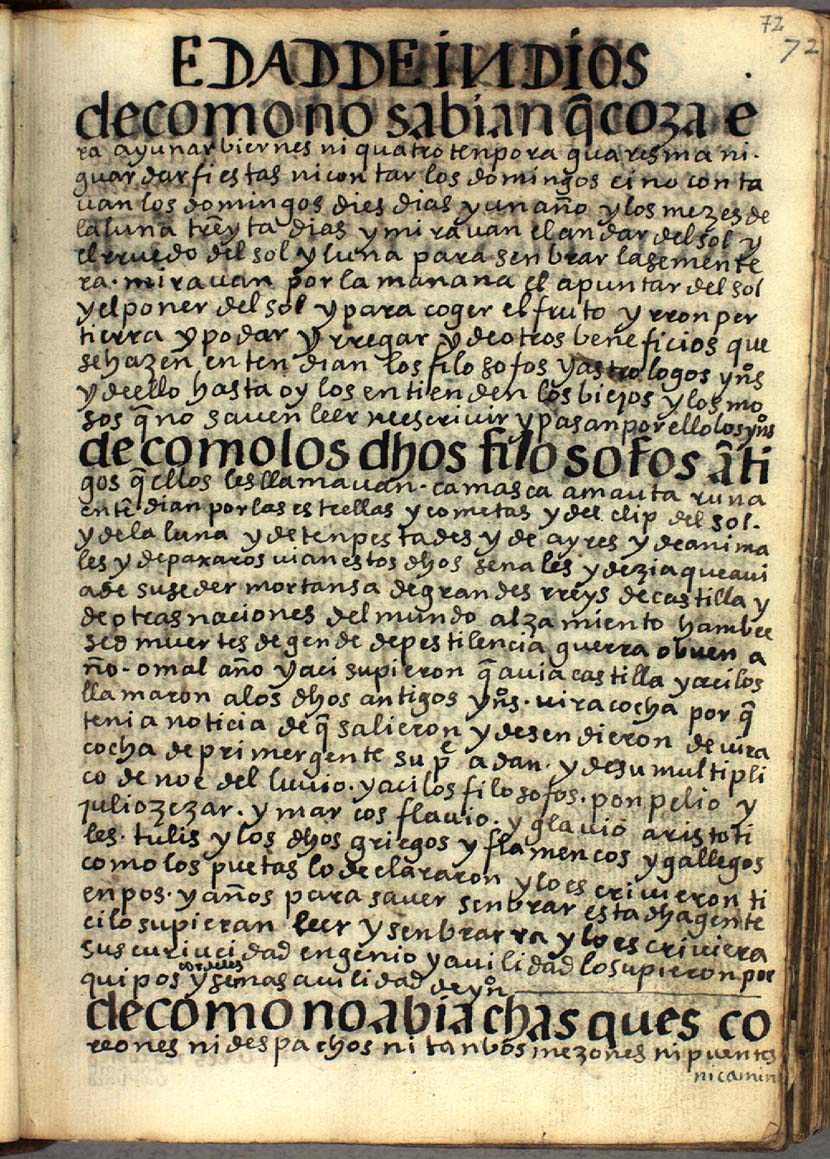 72
72
EDAD DE INDIOS
de como no sabian q̃ coza e
ra ayunar biernes ni quatro tenpora quaresma ni.
guardar fiestas ni contar los domingos ci no conta
uan los domingos dies dias y un año y los mezes de
la luna treyta dias y mirauan el andar del sol y
el rruedo del sol y luna para senbrar la semente
ra. mirauan por la manana el apuntar del sol
y el poner del sol y para coger el fruto y rronper
tierra y podar y rregar y de otros beneficios que
se hazen entendian los filosofos y astrologos yn̊s
y de ello hasta oy los entienden los biejos y los mo
sos q̃ no sauen leer ne escriuir y pasan por ello los yn̊s
de como los dhos filosofos ãti
gos q̃ ellos les llamauan. camasca amauta runa
entẽdian por las estrellas y cometas y del clip del sol.
y de la luna y de tenpestades y de ayres y de anima
les y de paxaros uian estos dhos senales y dezia que aui
a de suseder mortansa de grandes rreys de castilla y
de otras naciones del mundo alzamiento hambre
sed muertes de gende de pestilencia guerra o buen a
ño. o mal año y aci supieron q̃ auia castilla y aci los
llamaron a los dhos antigos yn̊s. uiracocha por q̃
tenia noticia de q̃ salieron y desendieron de uira
cocha de primer gente su pe adan. y de su multipli
co de noe del luuio. y aci los filosofos. ponpelio y
julio zezar. y marcos flauio. y glauio aristoti
les. tulis y los dhos griegos y flamencos y gallegos
como los puetas lo declararon y lo escriuieron ti
enpos. y años para sauer senbrar esta dha gente
ci lo supieran leer y senbrarra y lo escriuiera
sus curiucidad engenio y auilidad lo supieron por
quipos cordeles y senas auilidad de yn̊
de como no abia chasques co
reones ni despachos ni tanbos mezones ni puentes
ni camin